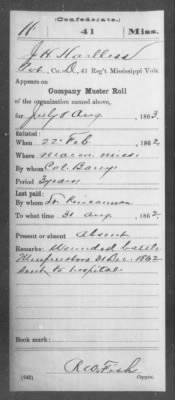 (Confederate.)
H 41 Miss.
J H Harless
Co. D, 41 Reg't Mississippi Vols.
Appears on
Company Muster Roll
of the organization named above,
for July & Aug, 1863.
Enlisted:
When 22 Feb, 1862
Where Macon Miss.
By whom Col. Banks
Period 3 years
Last paid:
By whom Kincannon
To what time 31 Aug, 1862.
Present or absent Absent
Remarks: Wounded battle
Murfreesboro 31 Dec. 1862
sent to hospital
Book mark:
R W Fish
(642) Copyist.